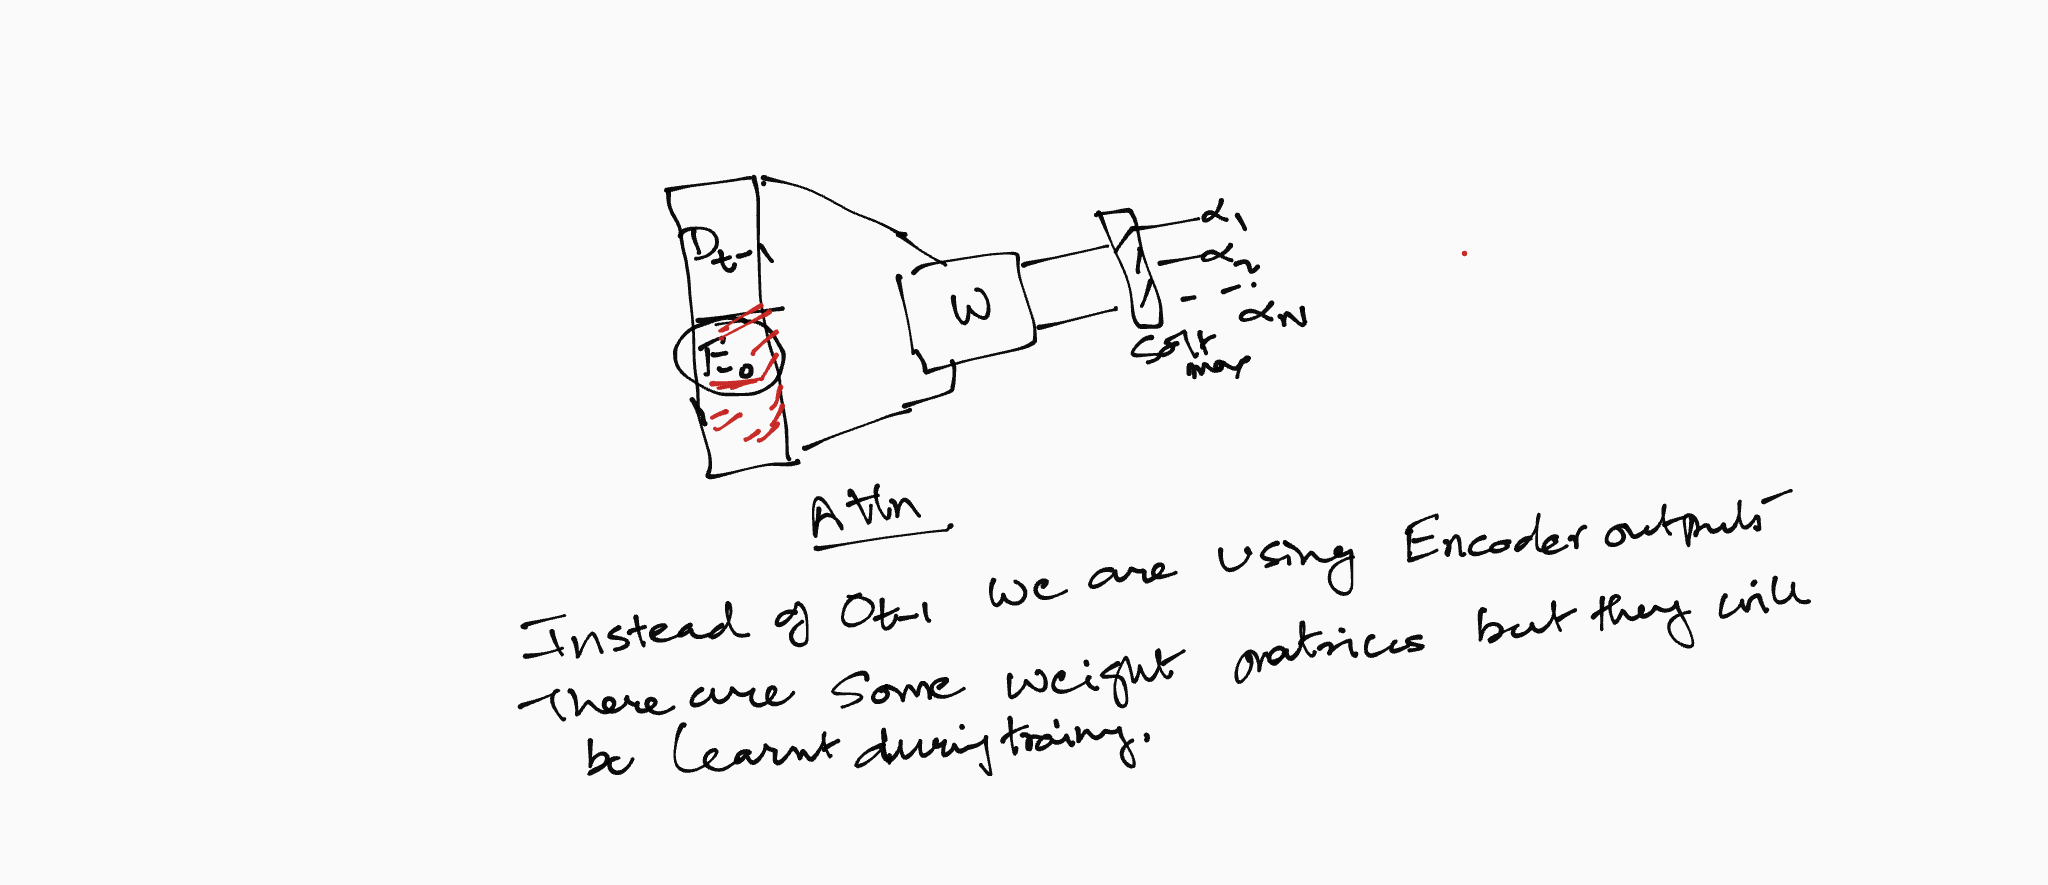 D t-1
E o
W
α1
α2
αN
Soft
max
Attn
Instead of Ot-1 we are using Encoder outputs
There are some weight matrices but they will
be learnt during training.